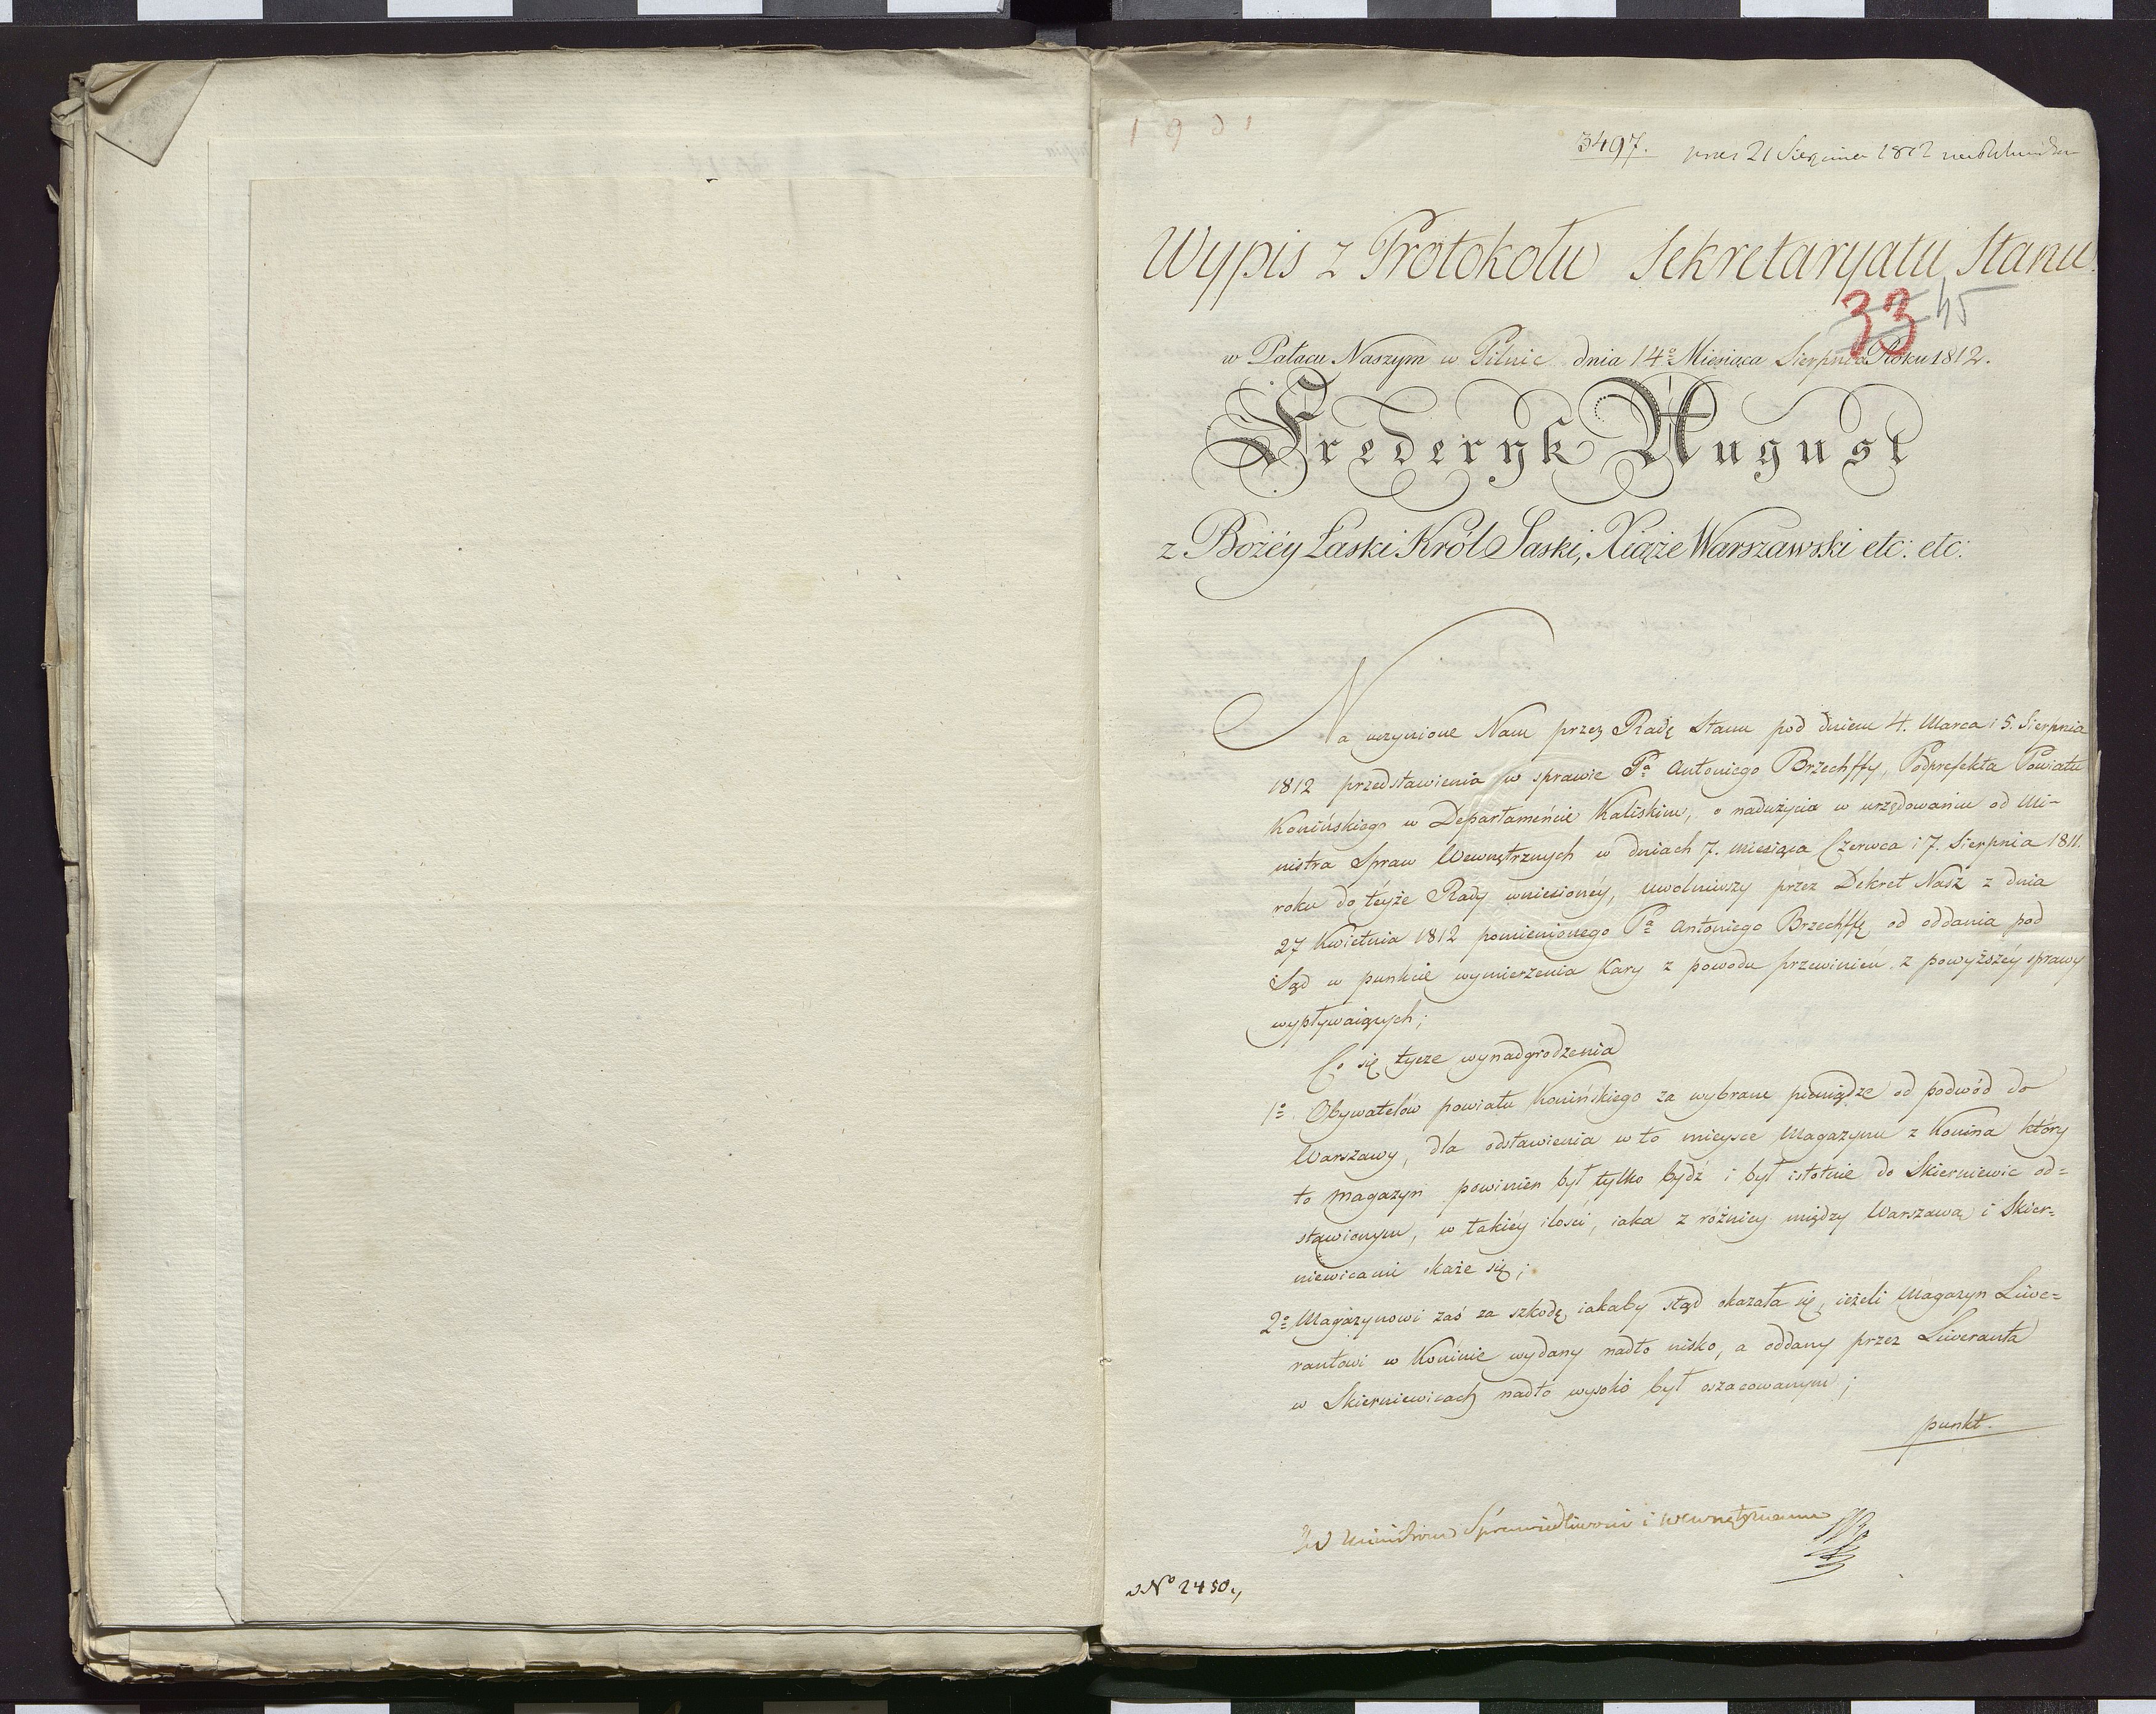 3497. pres 21 Sierpnia 1812
Wypis z Protokołu Sekretaryatu Stanu.
33 45
w Pałacu Naszym w Pilnic dnia 14º Miesiąca Sierpnia Roku 1812.
Frederyk August
z Bożéy Łaski Król Saski, Xiąże Warszawski etc: etc:
Na uczynione Nam przez Radę Stanu pod dniem 4. Marca i 5. Sierpnia
1812 przedstawienia w sprawie Pª Antoniego Brzechffy, Podprefekta Powiatu
Konińskiego w Departamencie Kaliskim, o nadużycia w urzędowaniu od Mi-
nistra Spraw Wewnętrznych w dniach 7. miesiąca Czerwca i 7. Sierpnia 1811.
roku do téyże Rady wniesionéy, uwolniwszy przez Dekret Nasz z dnia
27 Kwietnia 1812 pomienionego Pª Antoniego Brzechffę od oddania pod
Sąd w punkcie wymierzenia Kary z powodu przewinien z powyższéy sprawy
wypływaiących;
Co się tycze wynadgrodzenia
1º Obywatelów powiatu Konińskiego za wybrane pieniądze od podwód do
Warszawy, dla odstawienia w to mieysce Magazynu z Konina który
to magazyn powinien był tylko bydź i był istotnie do Skierniewic od=
stawionym, w takiéy ilości, iaka z różnicy między Warszawą i Skier=
niewicami okaże się;
2º Magazynowi zaś za szkodę iakaby stąd okazała się, ieżeli Magazyn Liwe=
rantowi w Koninie wydany nadto nisko, a oddany przez Liweranta
w Skierniewicach nadto wysoko był oszacowanym;
punkt.
W Ministrom Sprawiedliwości i Wewnętrznemu
No 2450.,